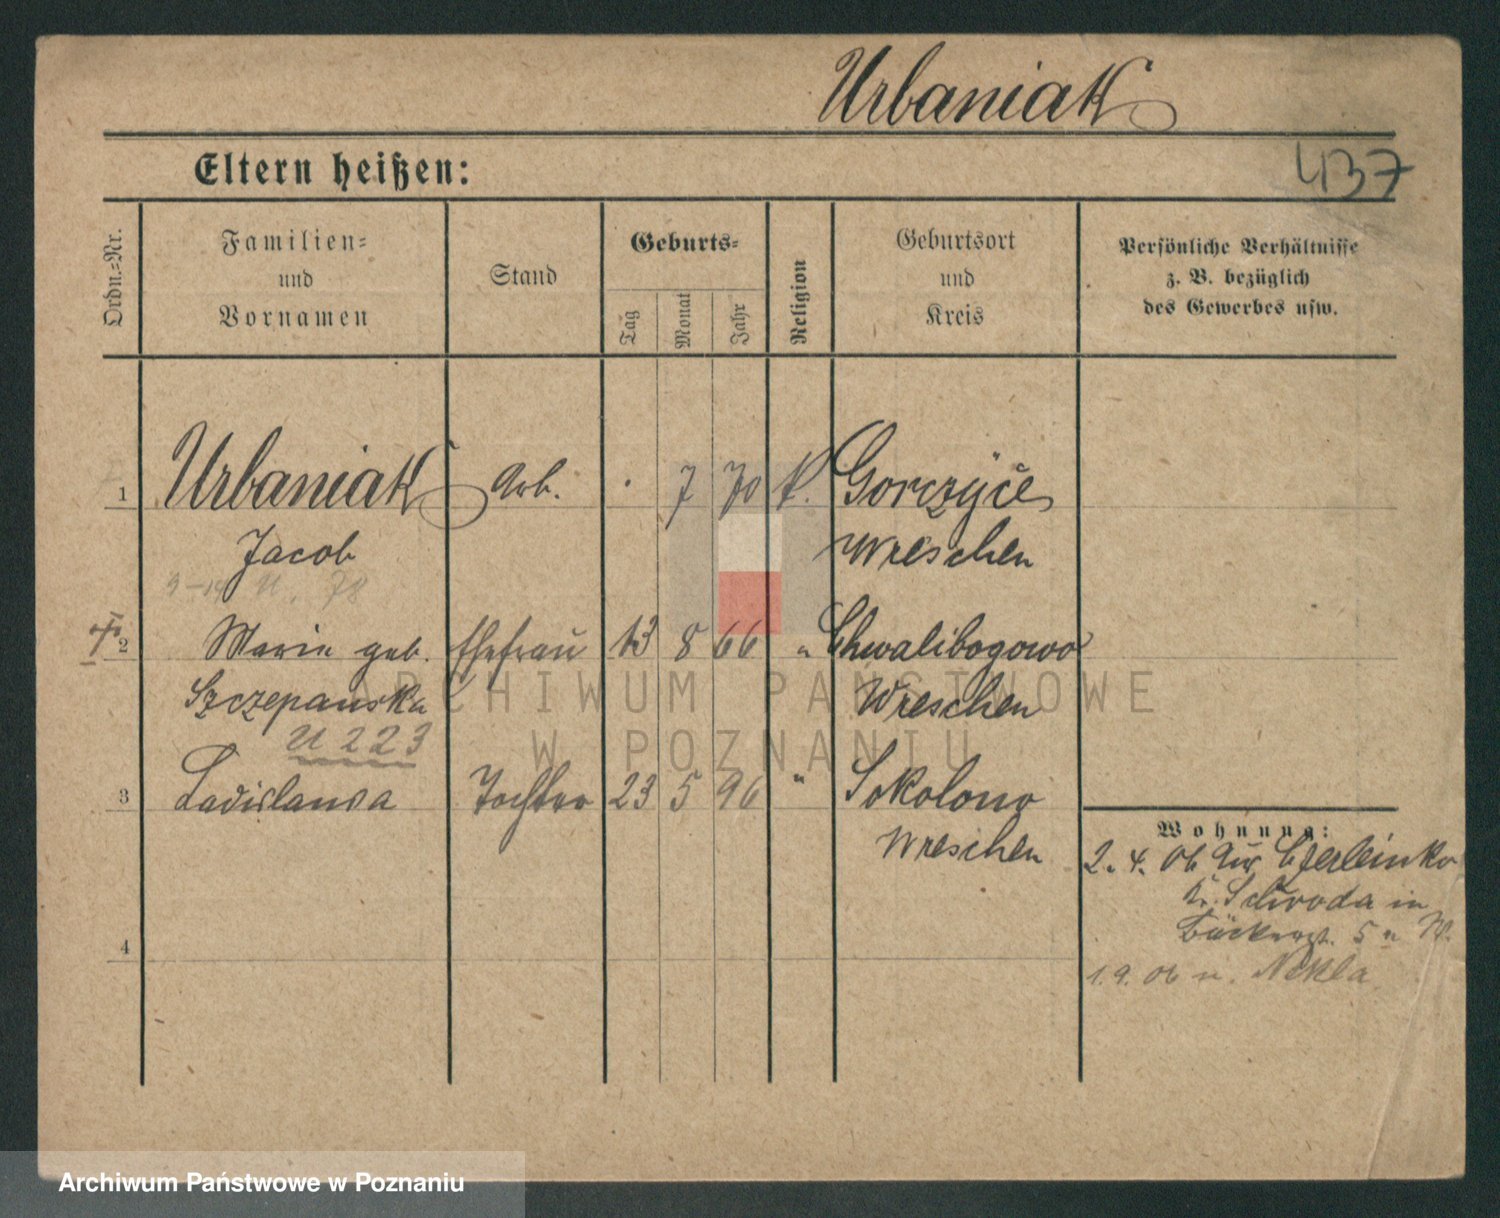 Urbaniak
Eltern heißen:
437
Ordn.-Nr.
Familien-
und
Vornamen
Stand
Geburts-
Tag
Monat
Jahr
Religion
Geburtsort
und
Kreis
Persönliche Verhältnisse
z. B. bezüglich
des Gewerbes usw.
1 Urbaniak Arb. 7 70 k. Gorczyce
Jacob Wreschen
2 Marie geb. Ehefrau 13 8 66 " Chwalibogowo
Szczepanska Wreschen
U 223
3 Ladislausa Tochter 23 5 96 " Sokolowo
Wreschen
Wohnung:
2. 4. 06
Kr. Schroda in
Bäckerst. 5
4
1. 9. 06 n. Nekla
ARCHIWUM PAŃSTWOWE
W POZNANIU
Archiwum Państwowe w Poznaniu